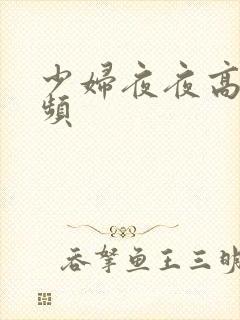 少婦夜夜高
頻
吞拏鱼王三